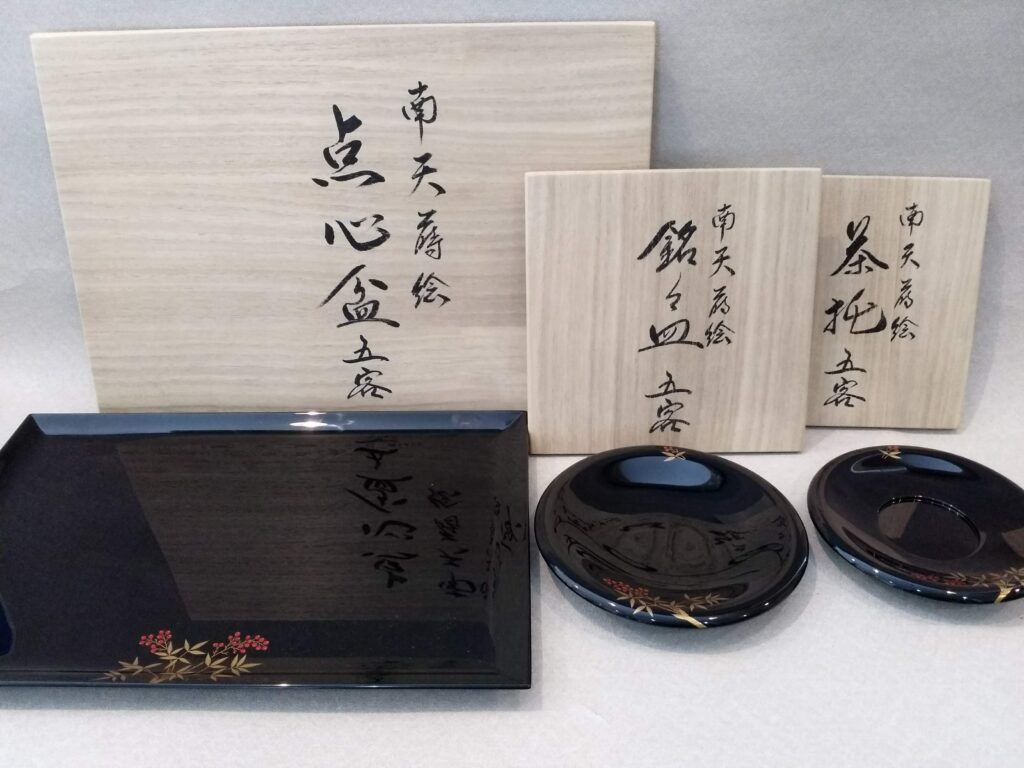 南天蒔絵
点心盆 五客
南天蒔絵
銘々皿 五客
南天蒔絵
茶托 五客